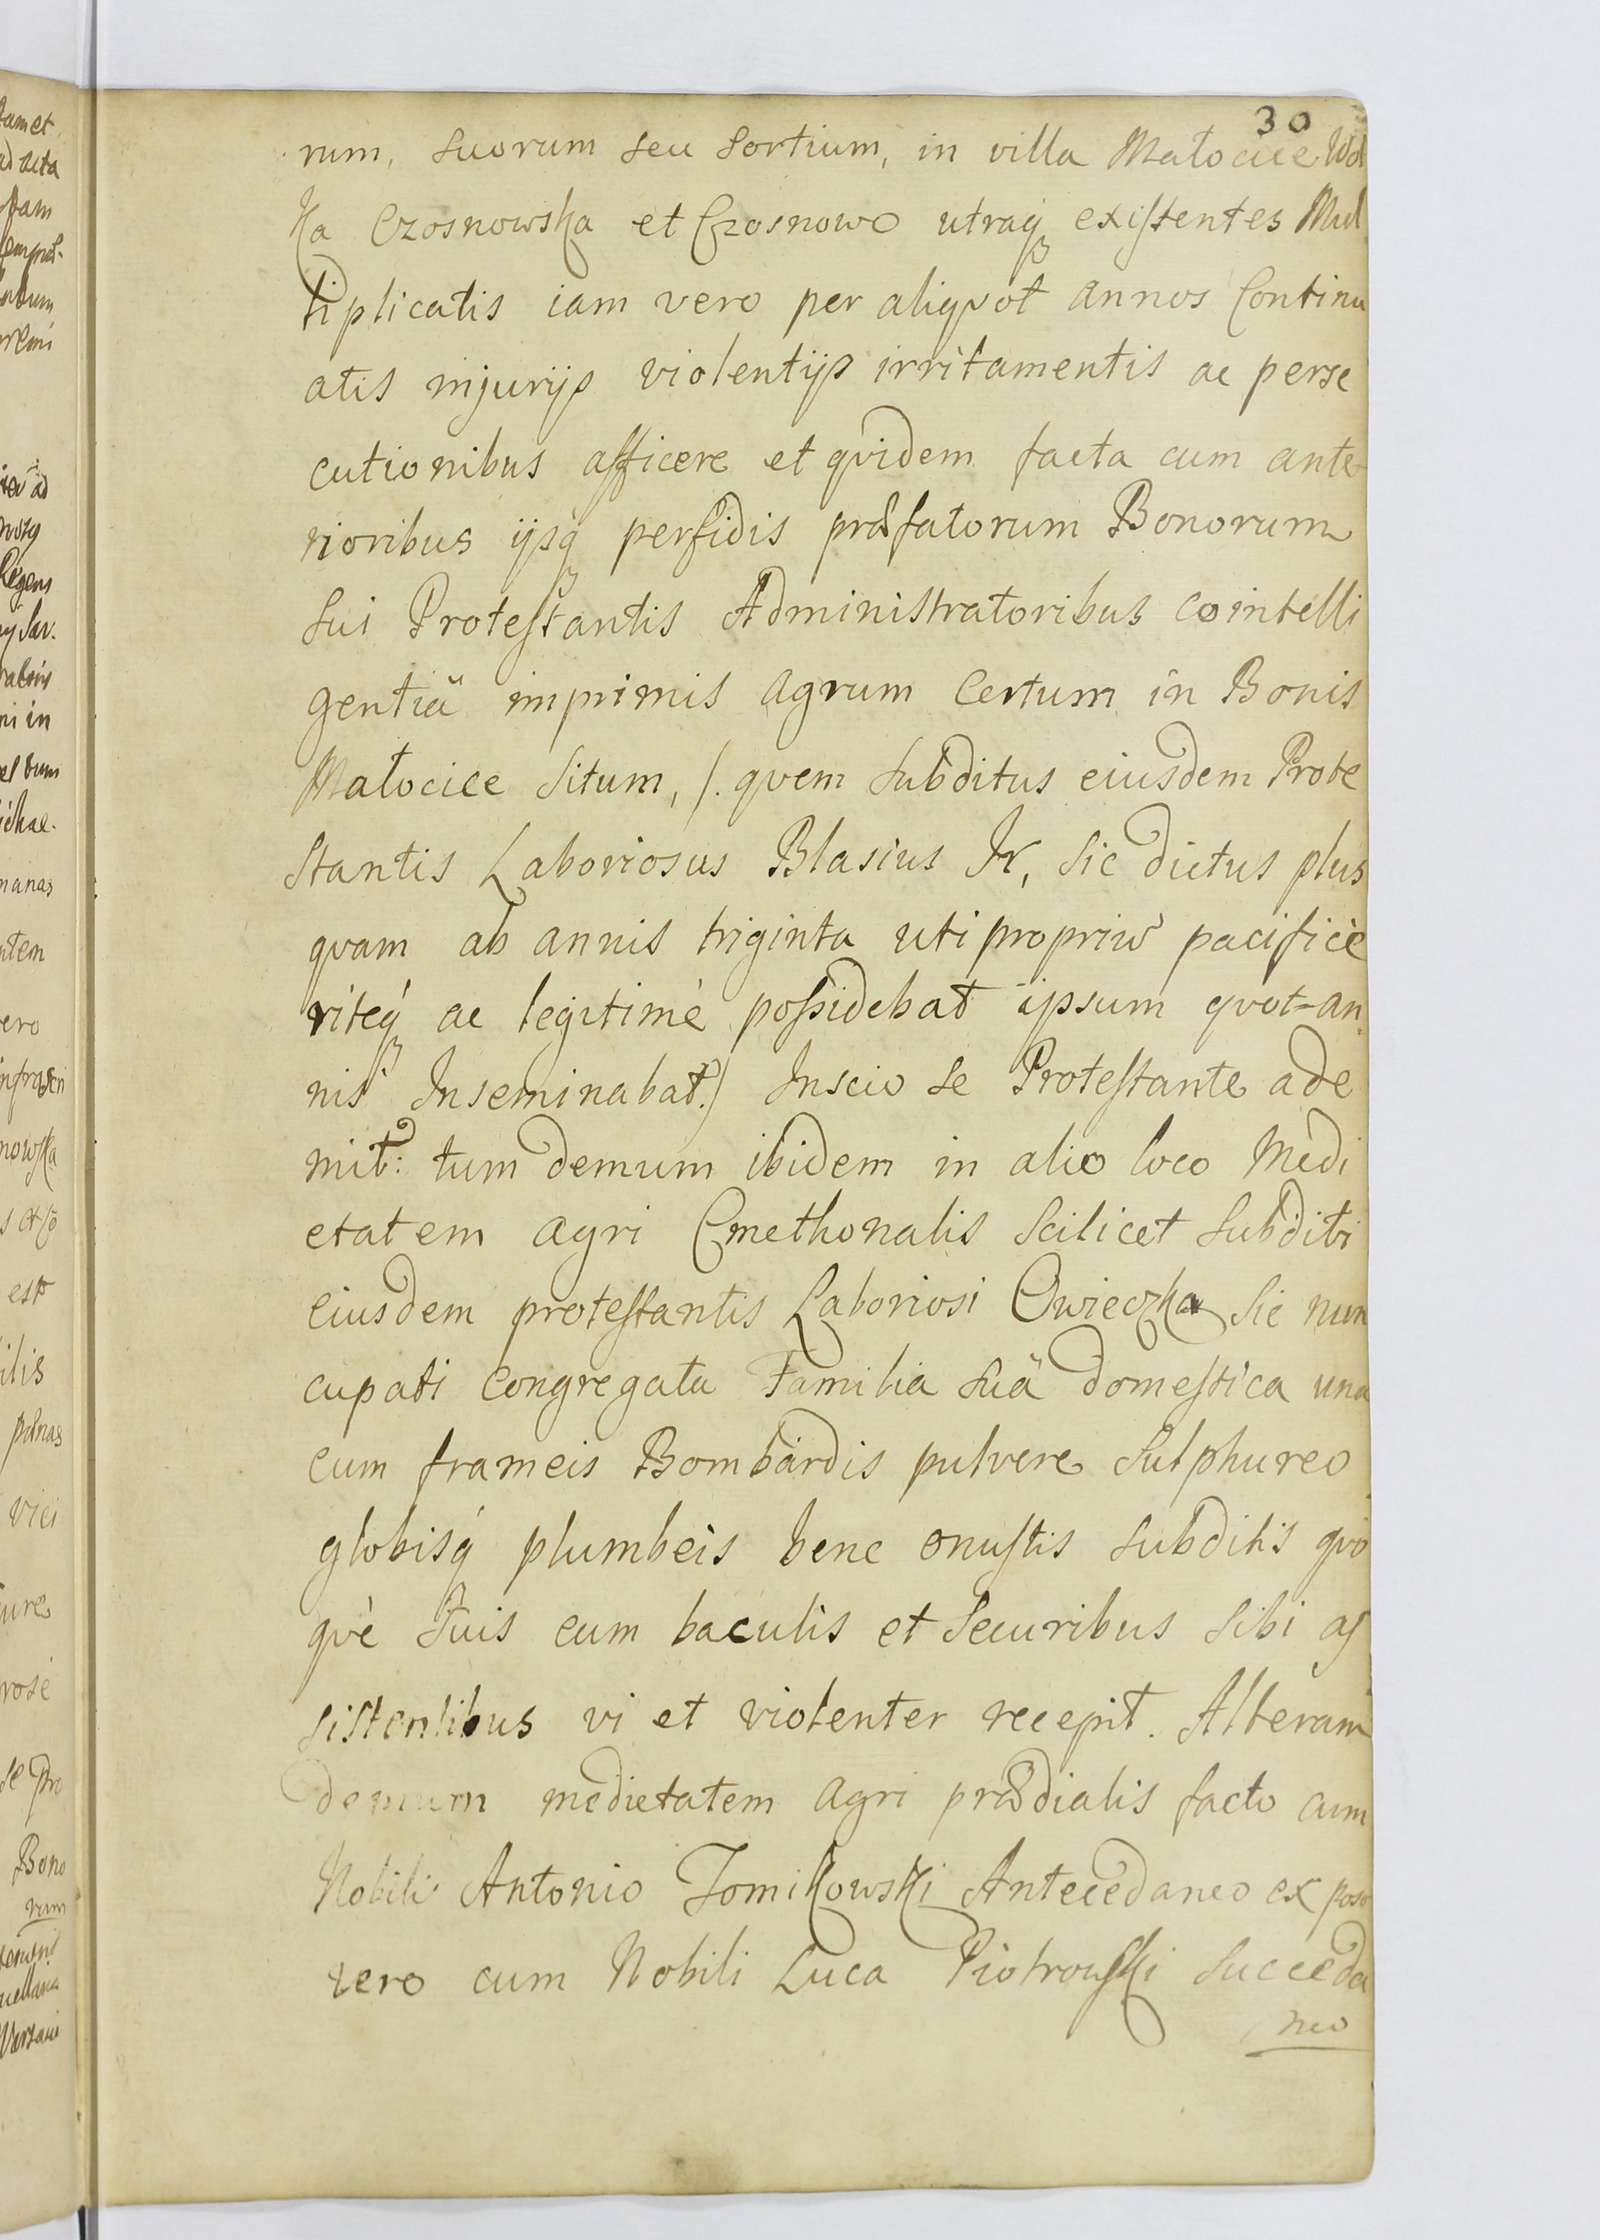 30
rum, suorum seu Sortium, in villa Małocice Wol
ka Czosnowska et Czosnowo utraqꝫ existentes Mul
tiplicatis iam vero per aliqvot annos Continu
atis injurijs violentijs irritamentis ac perse
cutionibus afficere et qvidem facta cum ante-
rioribus ijsqꝫ perfidis præfatorum Bonorum
sui Protestantis Administratoribus cointelli
gentiâ imprimis agrum Certum in Bonis
Małocice Situm, /. qvem subditus eiusdem Prote
stantis Laboriosus Blasius Jr, sic dictus plus
qvam ab annis triginta uti propriũ pacificè
ritéqꝫ ac legitimè possidebat ipsum qvot-an
nis Inseminabat./ Inscio se Protestante ade
mit: tum demum ibidem in alio loco Medi
etatem agri Cmethonalis scilicet subditi
eiusdem protestantis Laboriosi Owieczka sic nun
cupati congregata Familia suâ domestica una
cum frameis Bombardis pulvere Sulphureo
globisq́ plumbeis bene onustis subditis qvo
qvè suis cum baculis et securibus sibi as
sistentibus vi et violenter recepit. Alteram
demum medietatem agri prædialis facto cum
Nobili Antonio Tomikowski Antecedaneo ex post
vero cum Nobili Luca Piotrowski Succeda
neo